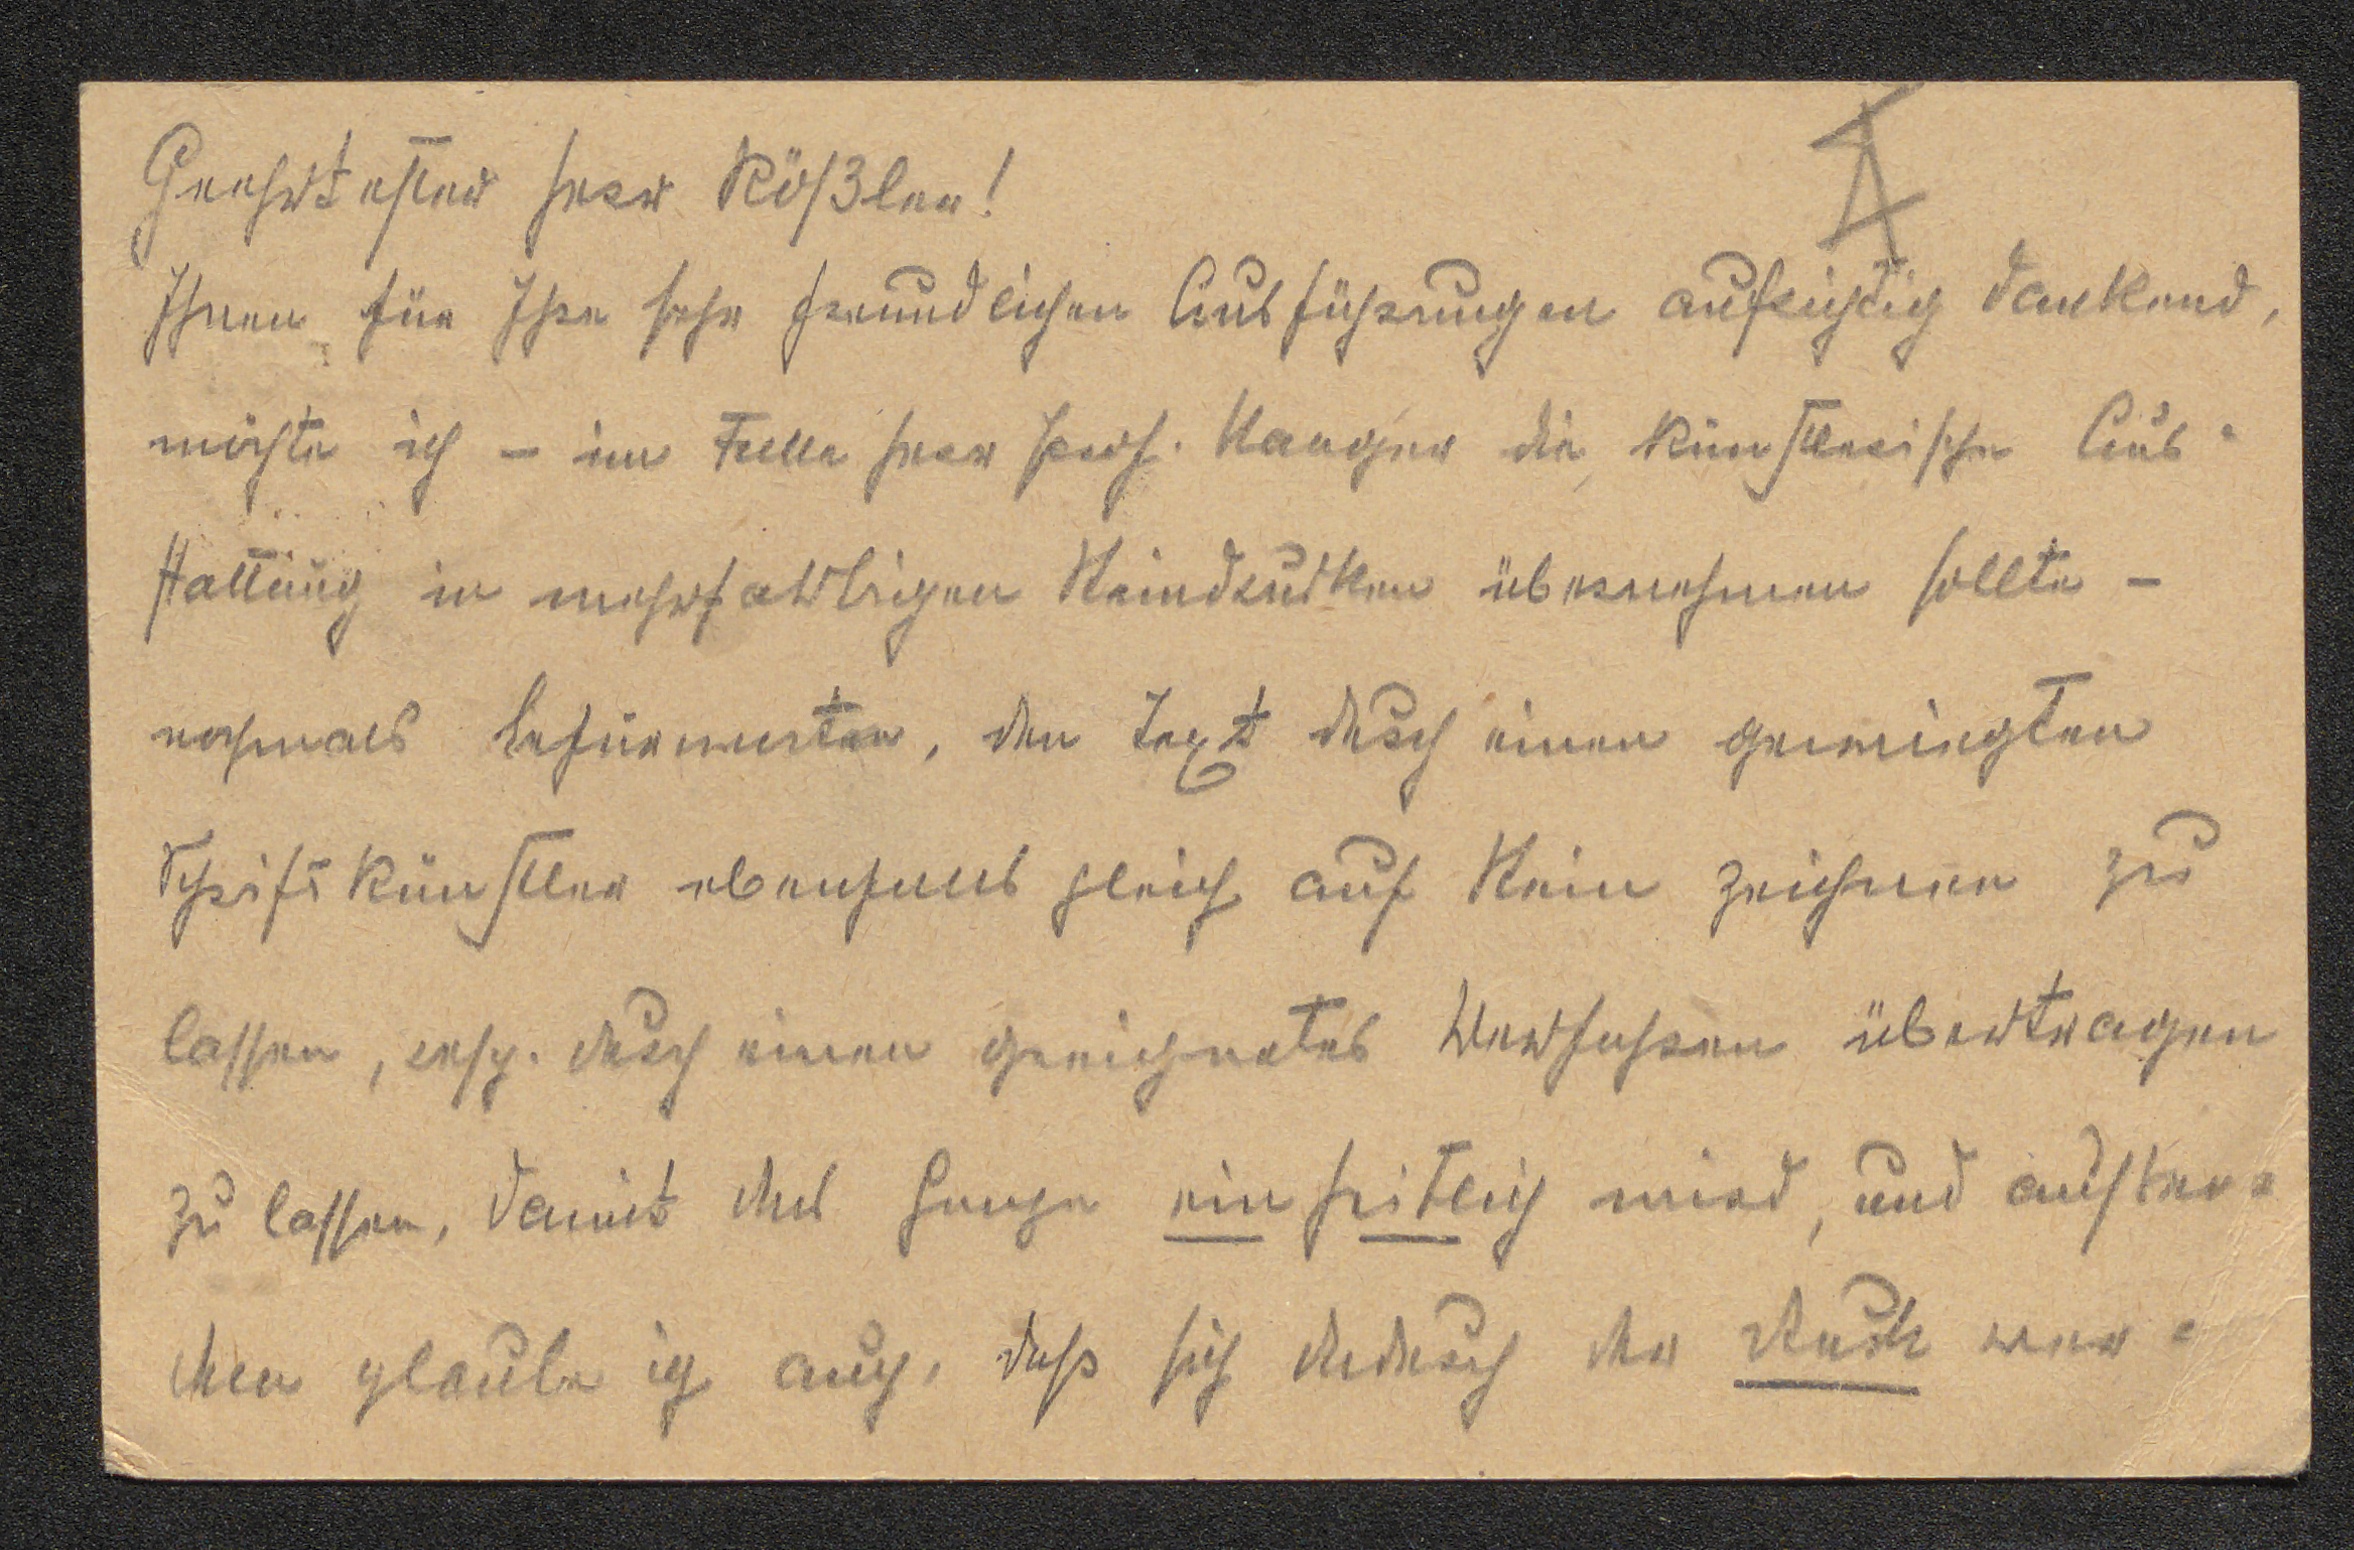 I
Geehrtester Herr Rößler!
Ihnen für Ihre sehr freundlichen Ausführungen aufrichtig dankend,
möchte ich – im Falle Herr Prof. Stanger die künstlerische Aus-
stattung in mehrfarbigen Steindrucken übernehmen sollte –
nochmals befürworten, den Text durch einen gewiegten
Schriftkünstler ebenfalls gleich auf Stein zeichnen zu
lassen, resp. durch einen geeignetes Verfahren übertragen
zu lassen, damit das Ganze einheitlich wird, und außer-
dem glaube ich auch, daß sich dadurch der Druck wer-